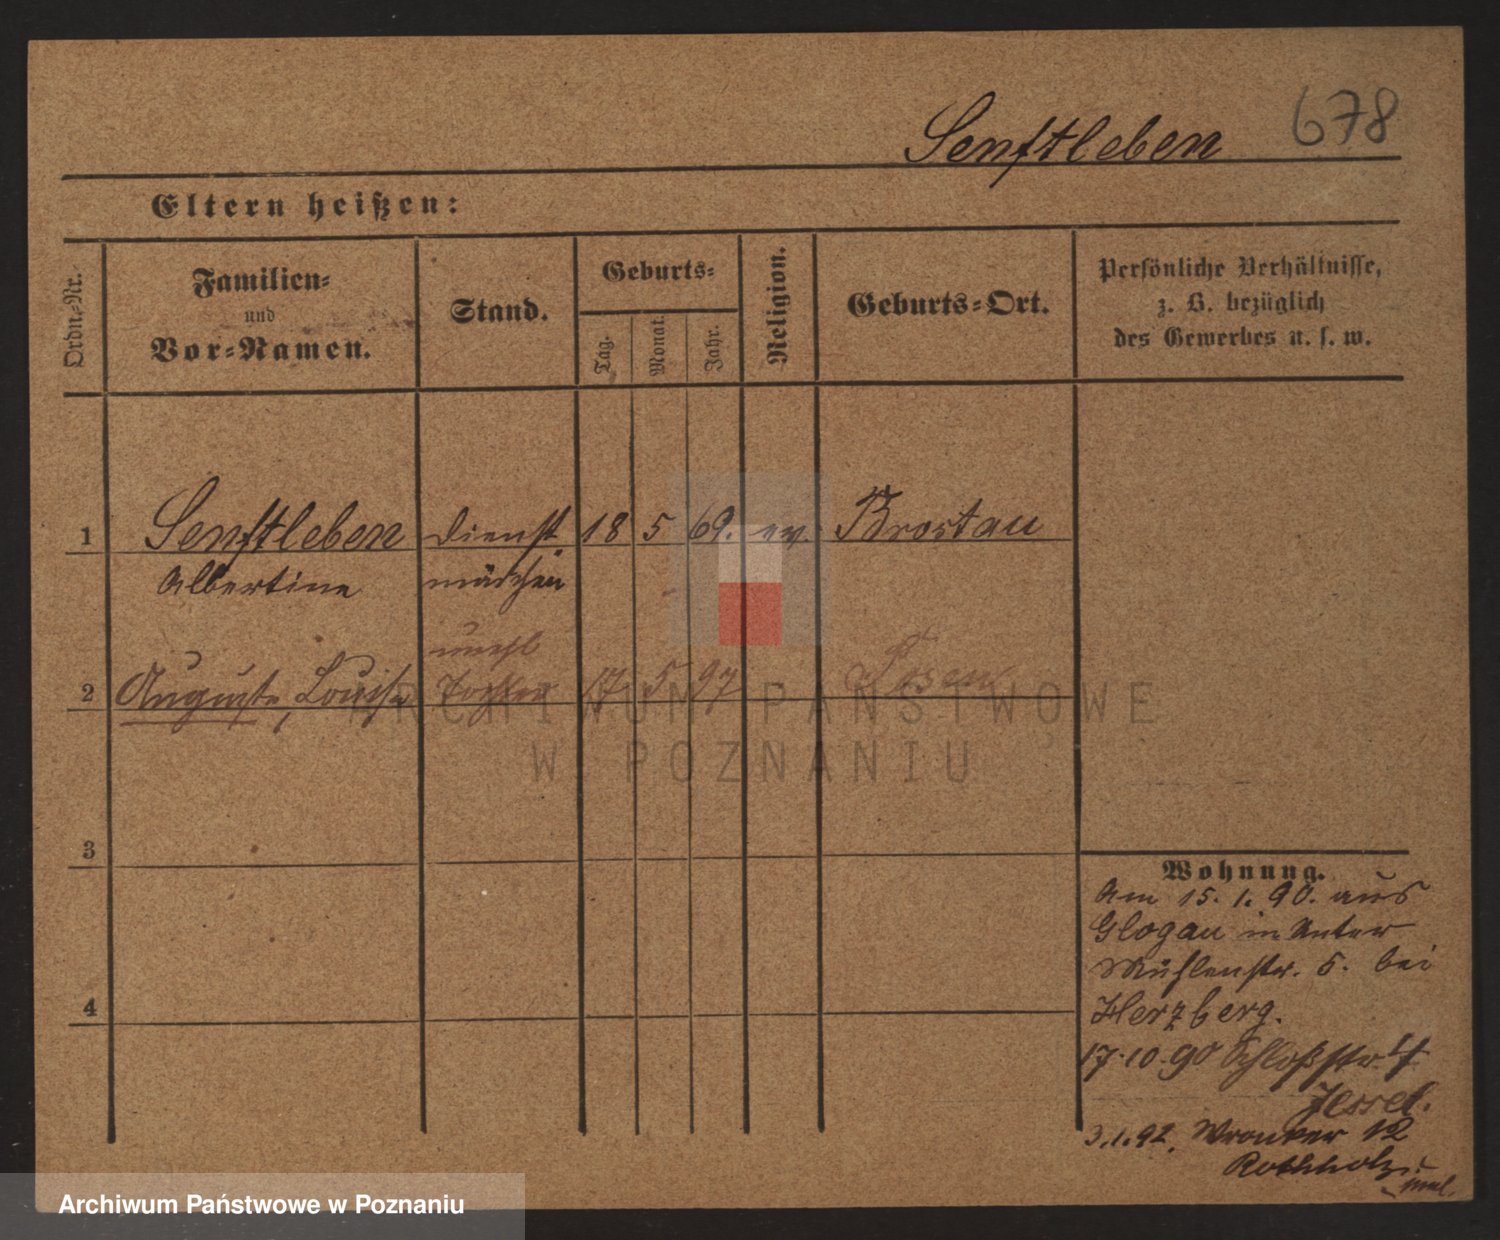 Senftleben 678
Eltern heißen:
Ordn.-Nr.
Familien-
und
Vor-Namen.
Stand.
Geburts-
Tag.
Monat.
Jahr.
Religion.
Geburts-Ort.
Persönliche Verhältnisse,
z. B. bezüglich
des Gewerbes u. s. w.
1 Senftleben Dienst 18 5 69. ev. Brostau
Albertine mädchen
unehl
2 Auguste, Louise Tochter 17 5 97 Posen
3
4
Wohnung.
Am 15. 1. 90. aus
Glogau in Unter
Mühlenstr. 5. bei
Herzberg.
17.10.90 Schloßstr. 4
3.1.92. Wronker 12
Rothholz
ARCHIWUM PAŃSTWOWE
W POZNANIU
Archiwum Państwowe w Poznaniu